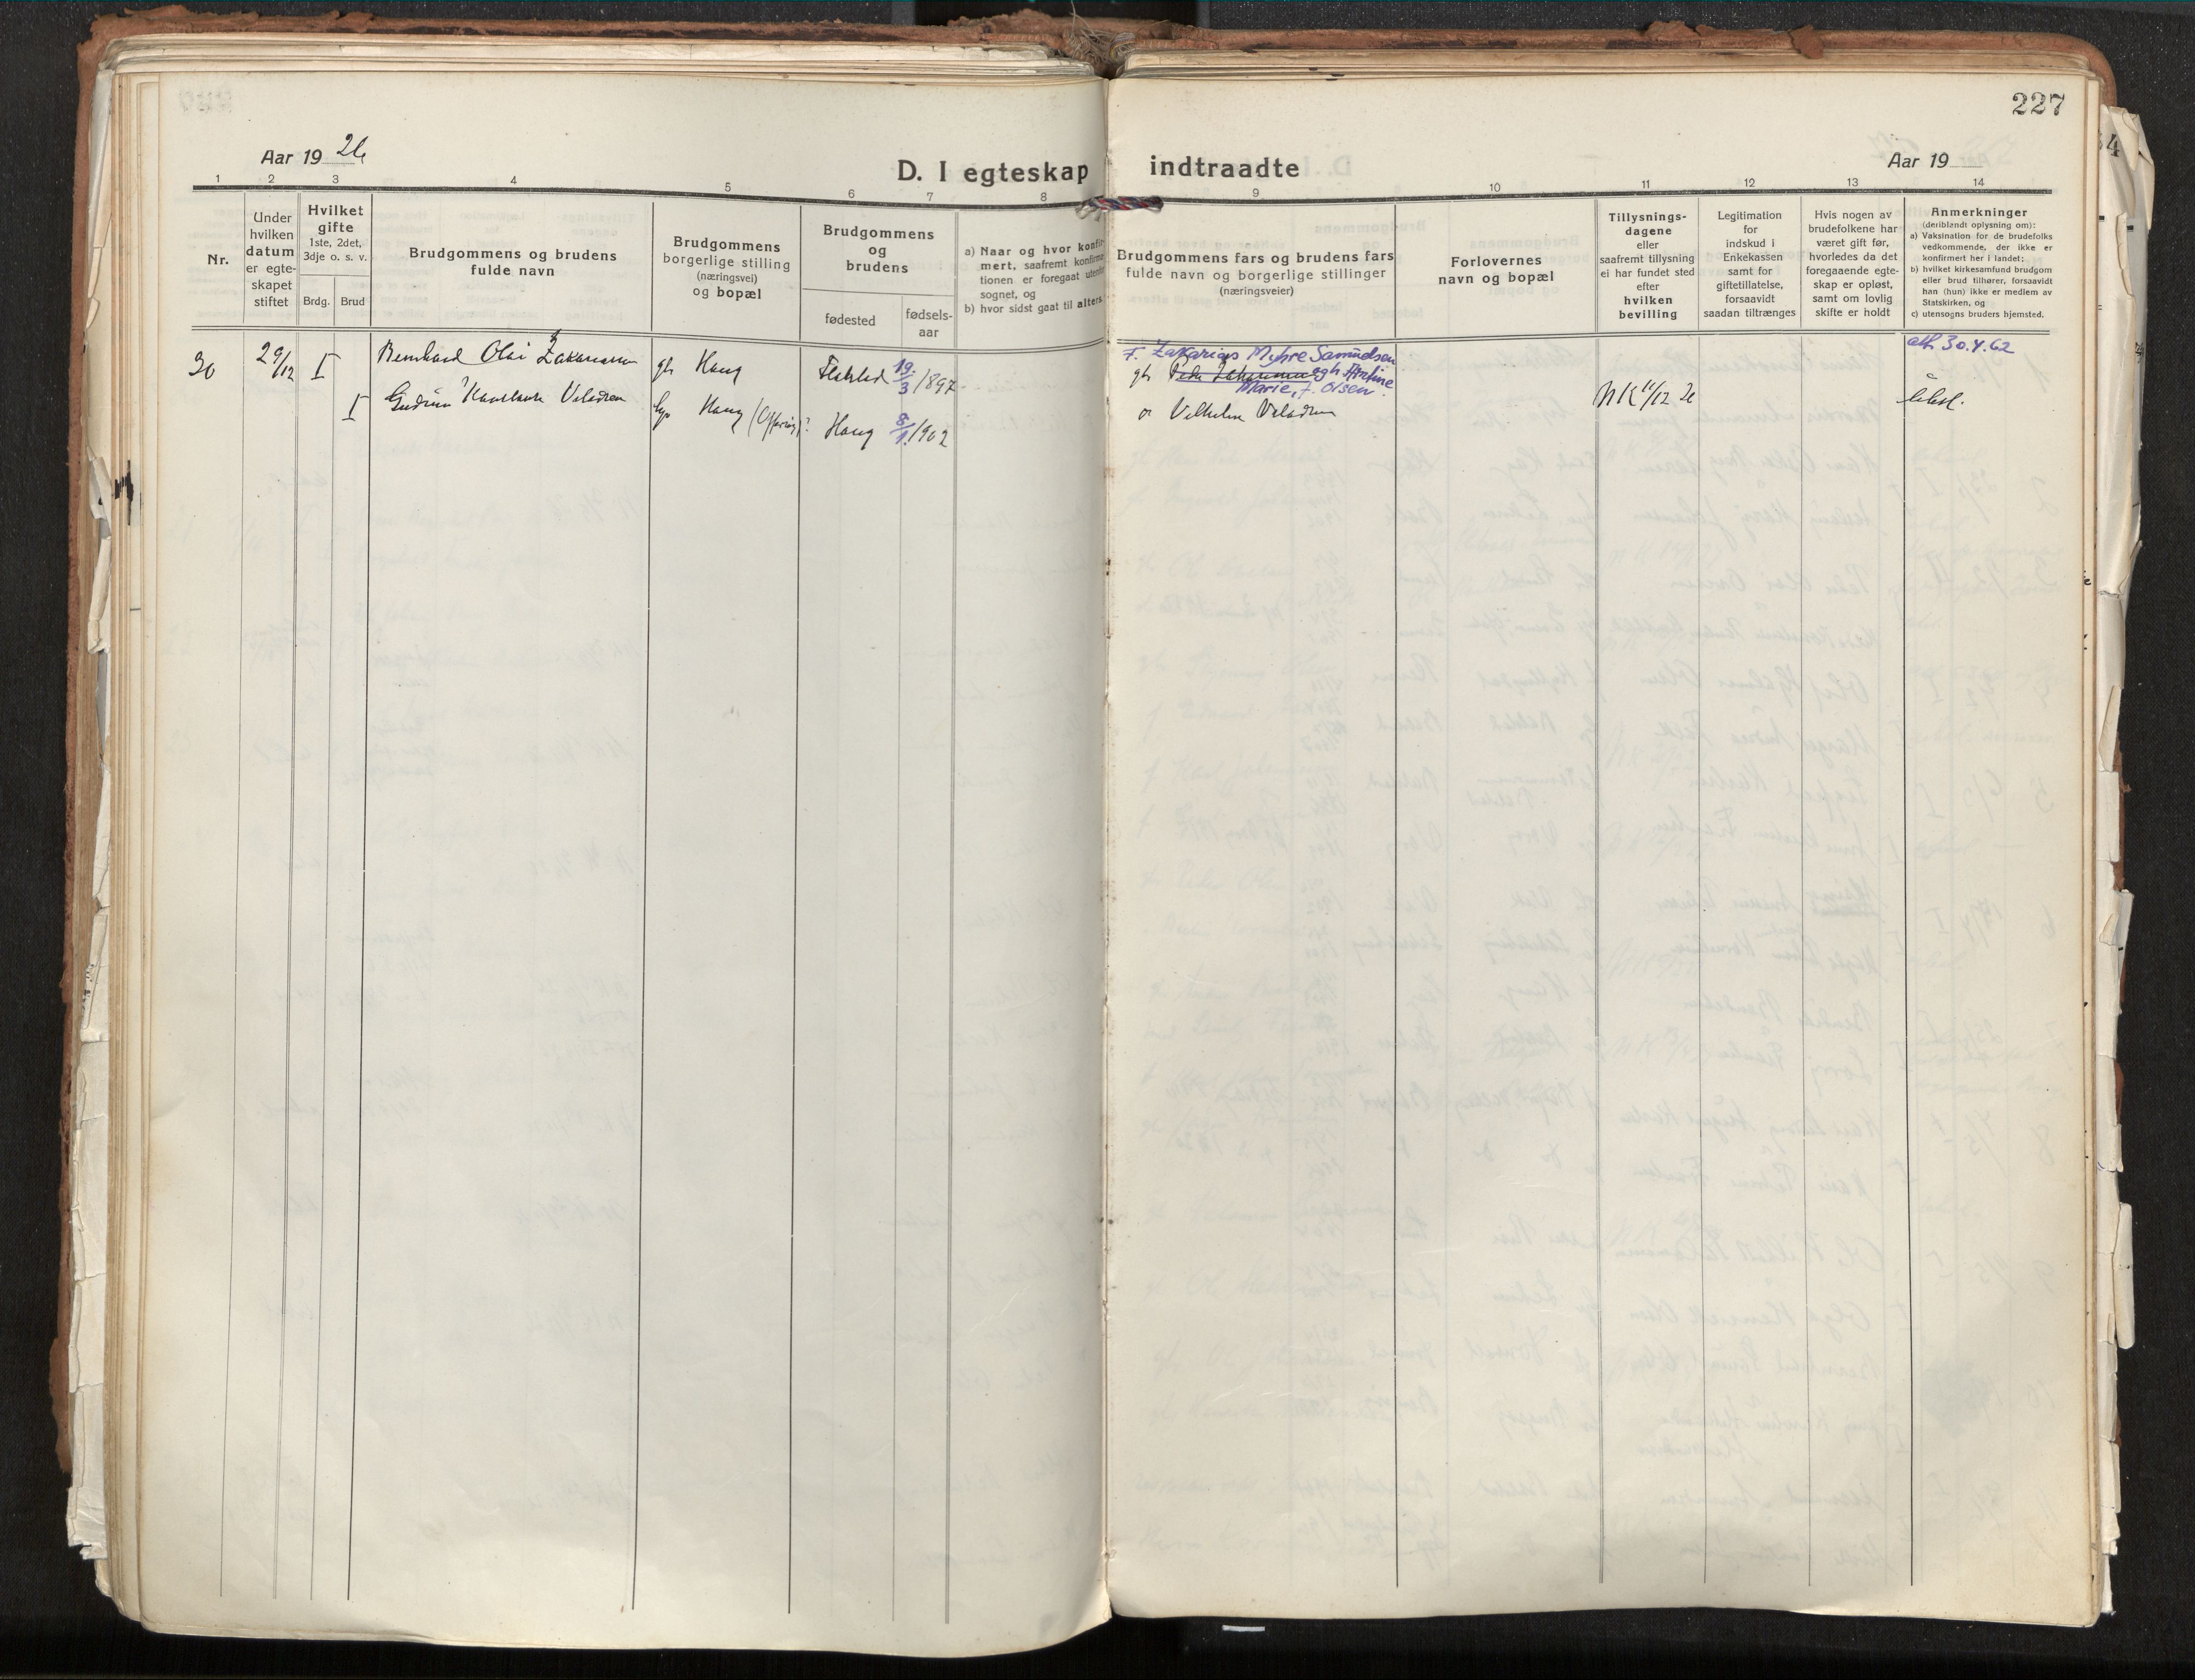 227
Aar 19 26
D. I egteskap indtraadte
Aar 19
1 2 3 4 5 6 7 8 9 10 11 12 13 14
Nr.
Under
hvilken
datum
er egte-
skapet
stiftet
Hvilket
gifte
1ste, 2det,
3dje o. s. v.
Brdg.
Brud
Brudgommens og brudens
fulde navn
Brudgommens
borgerlige stilling
(næringsvei)
og bopæl
Brudgommens
og
brudens
fødested
fødsels-
aar
a) Naar og hvor konfir-
mert, saafremt konfirma-
tionen er foregaat utenfor
sognet, og
b) hvor sidst gaat til alters.
Brudgommens fars og brudens fars
fulde navn og borgerlige stillinger
(næringsveier)
Forlovernes
navn og bopæl
Tillysnings-
dagene
eller
saafremt tillysning
ei har fundet sted
efter
hvilken
bevilling
Legitimation
for
indskud i
Enkekassen
samt for
giftetillatelse,
forsaavidt
saadan tiltrænges
Hvis nogen av
brudefolkene har
været gift før,
hvorledes da det
foregaaende egte-
skap er opløst,
samt om lovlig
skifte er holdt
Anmerkninger
(deriblandt oplysning om):
a) Vaksination for de brudefolks
vedkommende, der ikke er
konfirmert her i landet;
b) hvilket kirkesamfund brudgom
eller brud tilhører, forsaavidt
han (hun) ikke er medlem av
Statskirken, og
c) utensogns bruders hjemsted.
30
29/12
I
Bernhard Olai Zakariassen
gb Haug
Flakstad
19/3 1897
F. Zakarias Myhre Samuelsen
og h Antine
Marie, f. Olsen.
att 30.4.62
I
Gudrun
Haug
Haug
8/1 1902
Vilhelm
NK 11/12 26